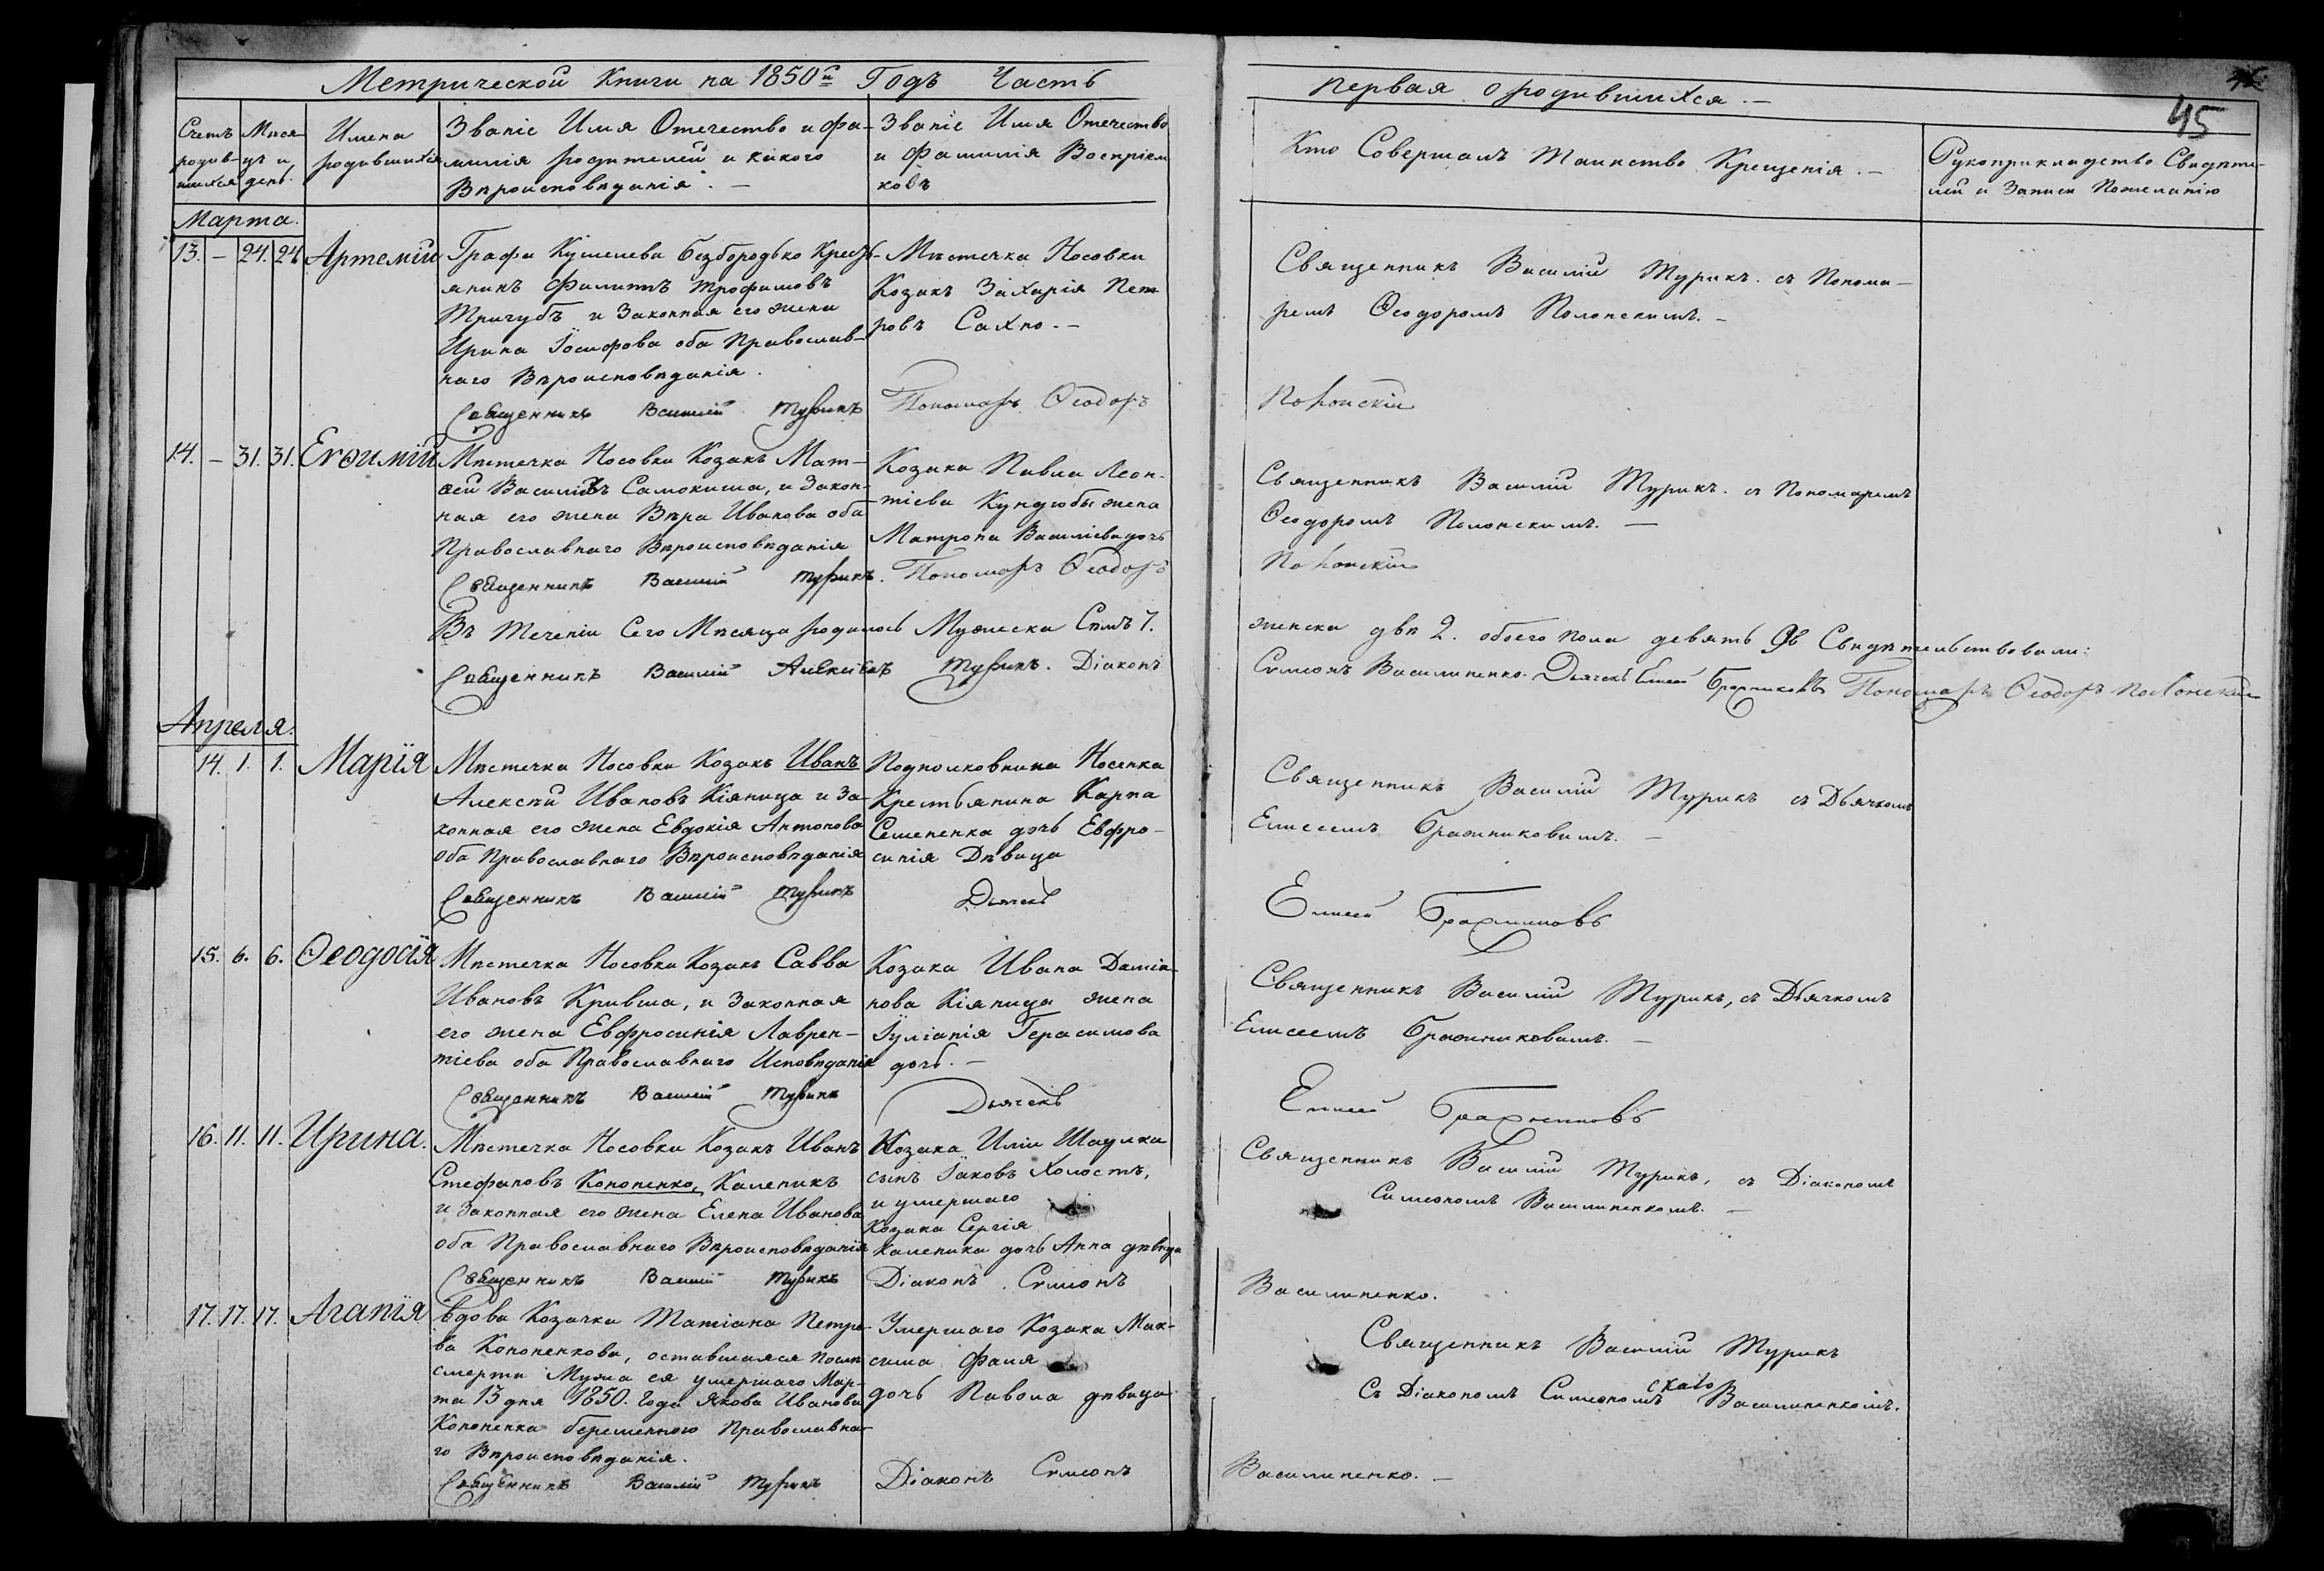 Метрической Книги на 1850й Годъ Часть
первая о родившихся. —
45
Счетъ родив-шихся
Мѣся-цъ и день.
Имена родившихся
Званіе Имя Отечество и фа-
милія родителей и какого
Вѣроисповѣданія. —
Званіе Имя Отечество
и Фамилія Воспріем
ковъ
Кто Совершалъ Таинство Крещенія. —
Рукоприкладство Свидѣте-
лей и Записи Пожеланію
Марта.
13. — 24. 24 Артемій
Графа Кушелева Безбородько Кресть-
янинъ Филиппъ Трофимовъ
Тригубъ и Законная его жена
Ирина Іосифова оба Православ-
наго Вѣроисповѣданія.
Священникъ Василій Турикъ
Мѣстечка Носовки
Козакъ Захарія Пет-
ровъ Сахно. —
Пономарь Ѳеодоръ
Священникъ Василій Турикъ. съ Понома-
ремъ Ѳеодоромъ Полонскимъ. —
Полонскій
14. — 31. 31. Евѳимій
Мѣстечка Носовки Козакъ Мат-
ѳей Василіевъ Самокиша, и Закон-
ная его жена Вѣра Иванова оба
Православнаго Вѣроисповѣданія
Священникъ Василій Турикъ.
Козака Павла Леон-
тіева Кундюбы жена
Матрона Василіева дочь
Пономарь Ѳеодоръ
Священникъ Василій Турикъ. съ Пономаремъ
Ѳеодоромъ Полонскимъ. —
Полонскій
Въ теченіи Сего Мѣсяца родилось Мужеска Семъ 7.
женска двѣ 2. обоего пола девять 9ъ Свидѣтельствовали:
Священникъ Василій Алексіевъ Турикъ. Діаконъ
Симеонъ Василиненко. Дьячекъ Елисей Бражниковъ Пономарь Ѳеодоръ Полонскій
Апреля.
14. 1. 1. Марія
Мѣстечка Носовки Козакъ Иванъ
Алексѣй Ивановъ Кіяница и За-
конная его жена Евдокія Антонова
оба Православнаго Вѣроисповѣданія
Священникъ Василій Турикъ
Подполковника Носенка
Крестьянина Карпа
Семененка дочь Евфро-
синія Дѣвица
Дьячекъ
Священникъ Василій Турикъ съ Дьячкомъ
Елисеемъ Бражниковимъ. —
Елисей Бражниковъ
15. 6. 6. Ѳеодосія
Мѣстечка Носовки Козакъ Савва
Ивановъ Кривша, и Законная
его жена Евфросинія Лаврен-
тіева оба Православнаго Исповѣданія
Священникъ Василій Турикъ
Козака Ивана Даміа-
нова Кіяница жена
Іуліанія Герасимова
дочь. —
Дьячекъ
Священникъ Василій Турикъ, съ Дьячкомъ
Елисеемъ Бражниковимъ. —
Елисей Бражниковъ
16. 11. 11. Ирина.
Мѣстечка Носовки Козакъ Иванъ
Стефановъ Кононенко, Каленикъ
и Законная его жена Елена Иванова
оба Православнаго Вѣроисповѣданія
Священникъ Василій Турикъ
Козака Иліи Шаулка
сынъ Іаковъ Холостъ,
и умершаго
Козака Сергія
Каленика дочь Анна дѣвица
Діаконъ Симеонъ
Священникъ Василій Турикъ, съ Діакономъ
Симеономъ Василиненкомъ. —
Василиненко.
17. 17. 17. Агапія
Вдова Козачка Татіана Петро-
ва Кононенкова, оставшаяся послѣ
смерти Мужа ея умершаго Мар-
та 13 дня 1850. Года Якова Иванова
Кононенка беременною Православна-
го Вѣроисповѣданія.
Священникъ Василій Турикъ
Умершаго Козака Мак-
сима Фаля
дочь Павола дѣвица
Діаконъ Симеонъ
Священникъ Василій Турикъ
Съ Діакономъ Симеономъ Василиненкомъ.
Василиненко. —